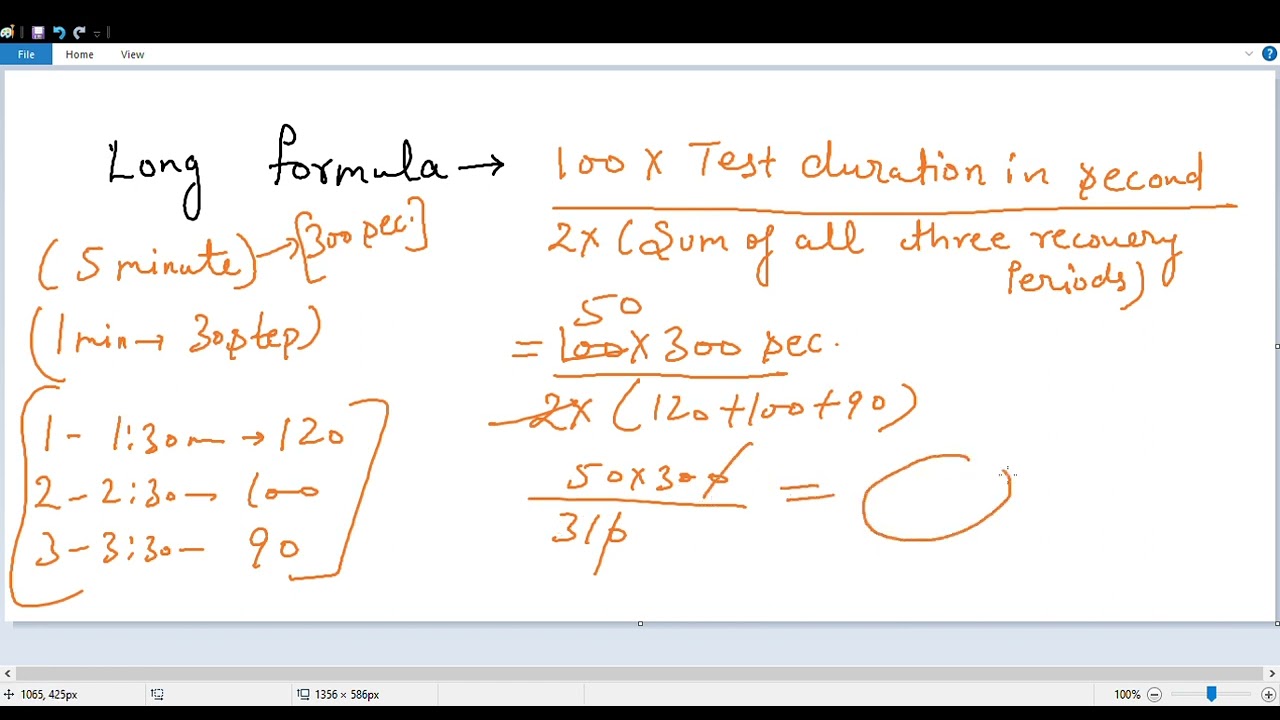 File Home View
Long formula → 100 x Test duration in second
2x (Sum of all three recovery Periods)
(5 minute) → [300 sec.]
(1 min → 30 step)
1 - 1:30 → 120
2 - 2:30 — 100
3 - 3:30 — 90
50
= 100 x 300 sec.
2x (120+100+90)
50 x 300
310
=
1065, 425px
1356 × 586px
100%